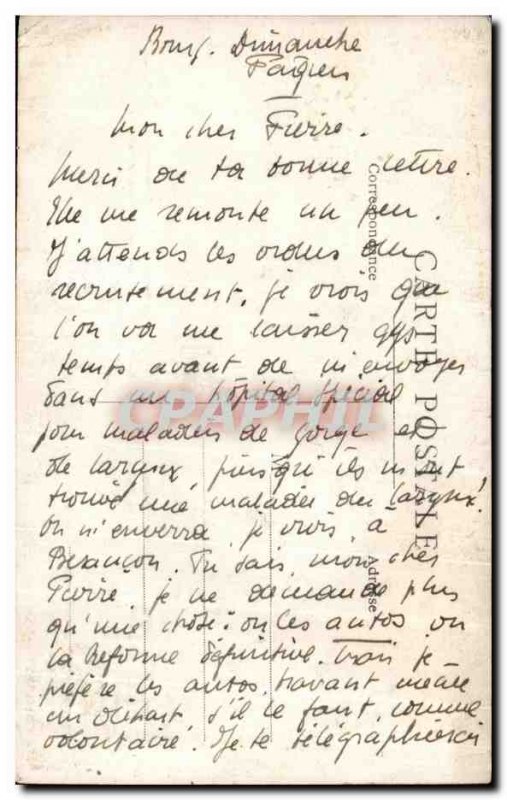 Bourg. Dimanche
Pâques
Mon cher Pierre.
Merci de ta bonne lettre.
Elle me remonte un peu.
J'attends les ordres du
recrutement. je crois que
l'on va me laisser qqs
temps avant de m'envoyer
dans un hôpital spécial
pour maladies de gorge et
de larynx, puisqu'ils m'ont
trouvé une maladie du larynx!
On m'enverra, je crois, à
Besançon. Tu sais, mon cher
Pierre, je ne demande plus
qu'une chose: ou les autos, ou
la Réforme définitive. Mais je
préfère les autos,
un départ, s'il le faut, comme
volontaire. Je te télégraphierai
Correspondance
CARTE POSTALE
Adresse
CARTE POSTALE